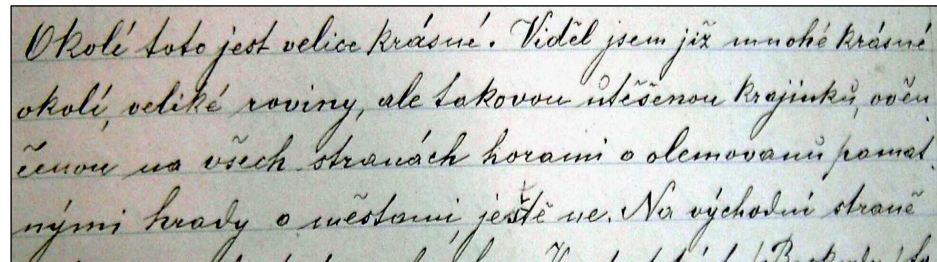 Okolé toto jest velice krásné. Viděl jsem již mnohé krásné
okolí, veliké roviny, ale takovou utěšenou krajinků,ověn
čenou na všech stranách horami o olemovanů pamat.
nými hrady o městami, ještě ne. Na východní straně